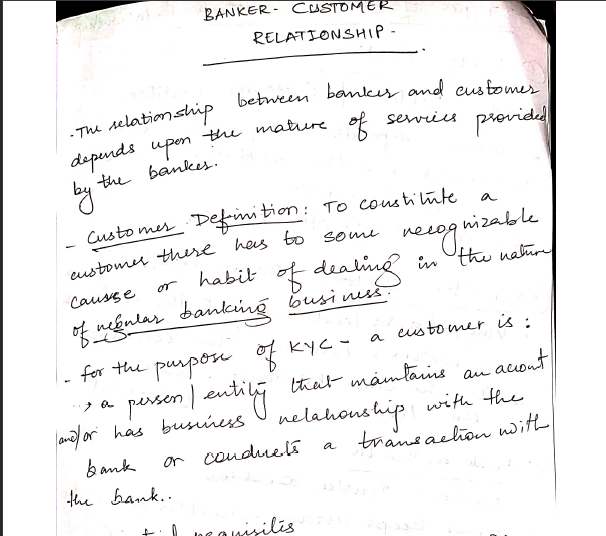 BANKER - CUSTOMER
RELATIONSHIP -
. The relationship between banker and customer
depends upon the nature of services provided
by the banker.
- Customer Definition: To constitute a
customer there has to some recognizable
causse or habit of dealing in the nature
of regular banking business.
- for the purpose of KYC - a customer is :
→ a person / entity that maintains an account
and/or has business relationship with the
bank or conducts a transaction with
the bank..
requisites